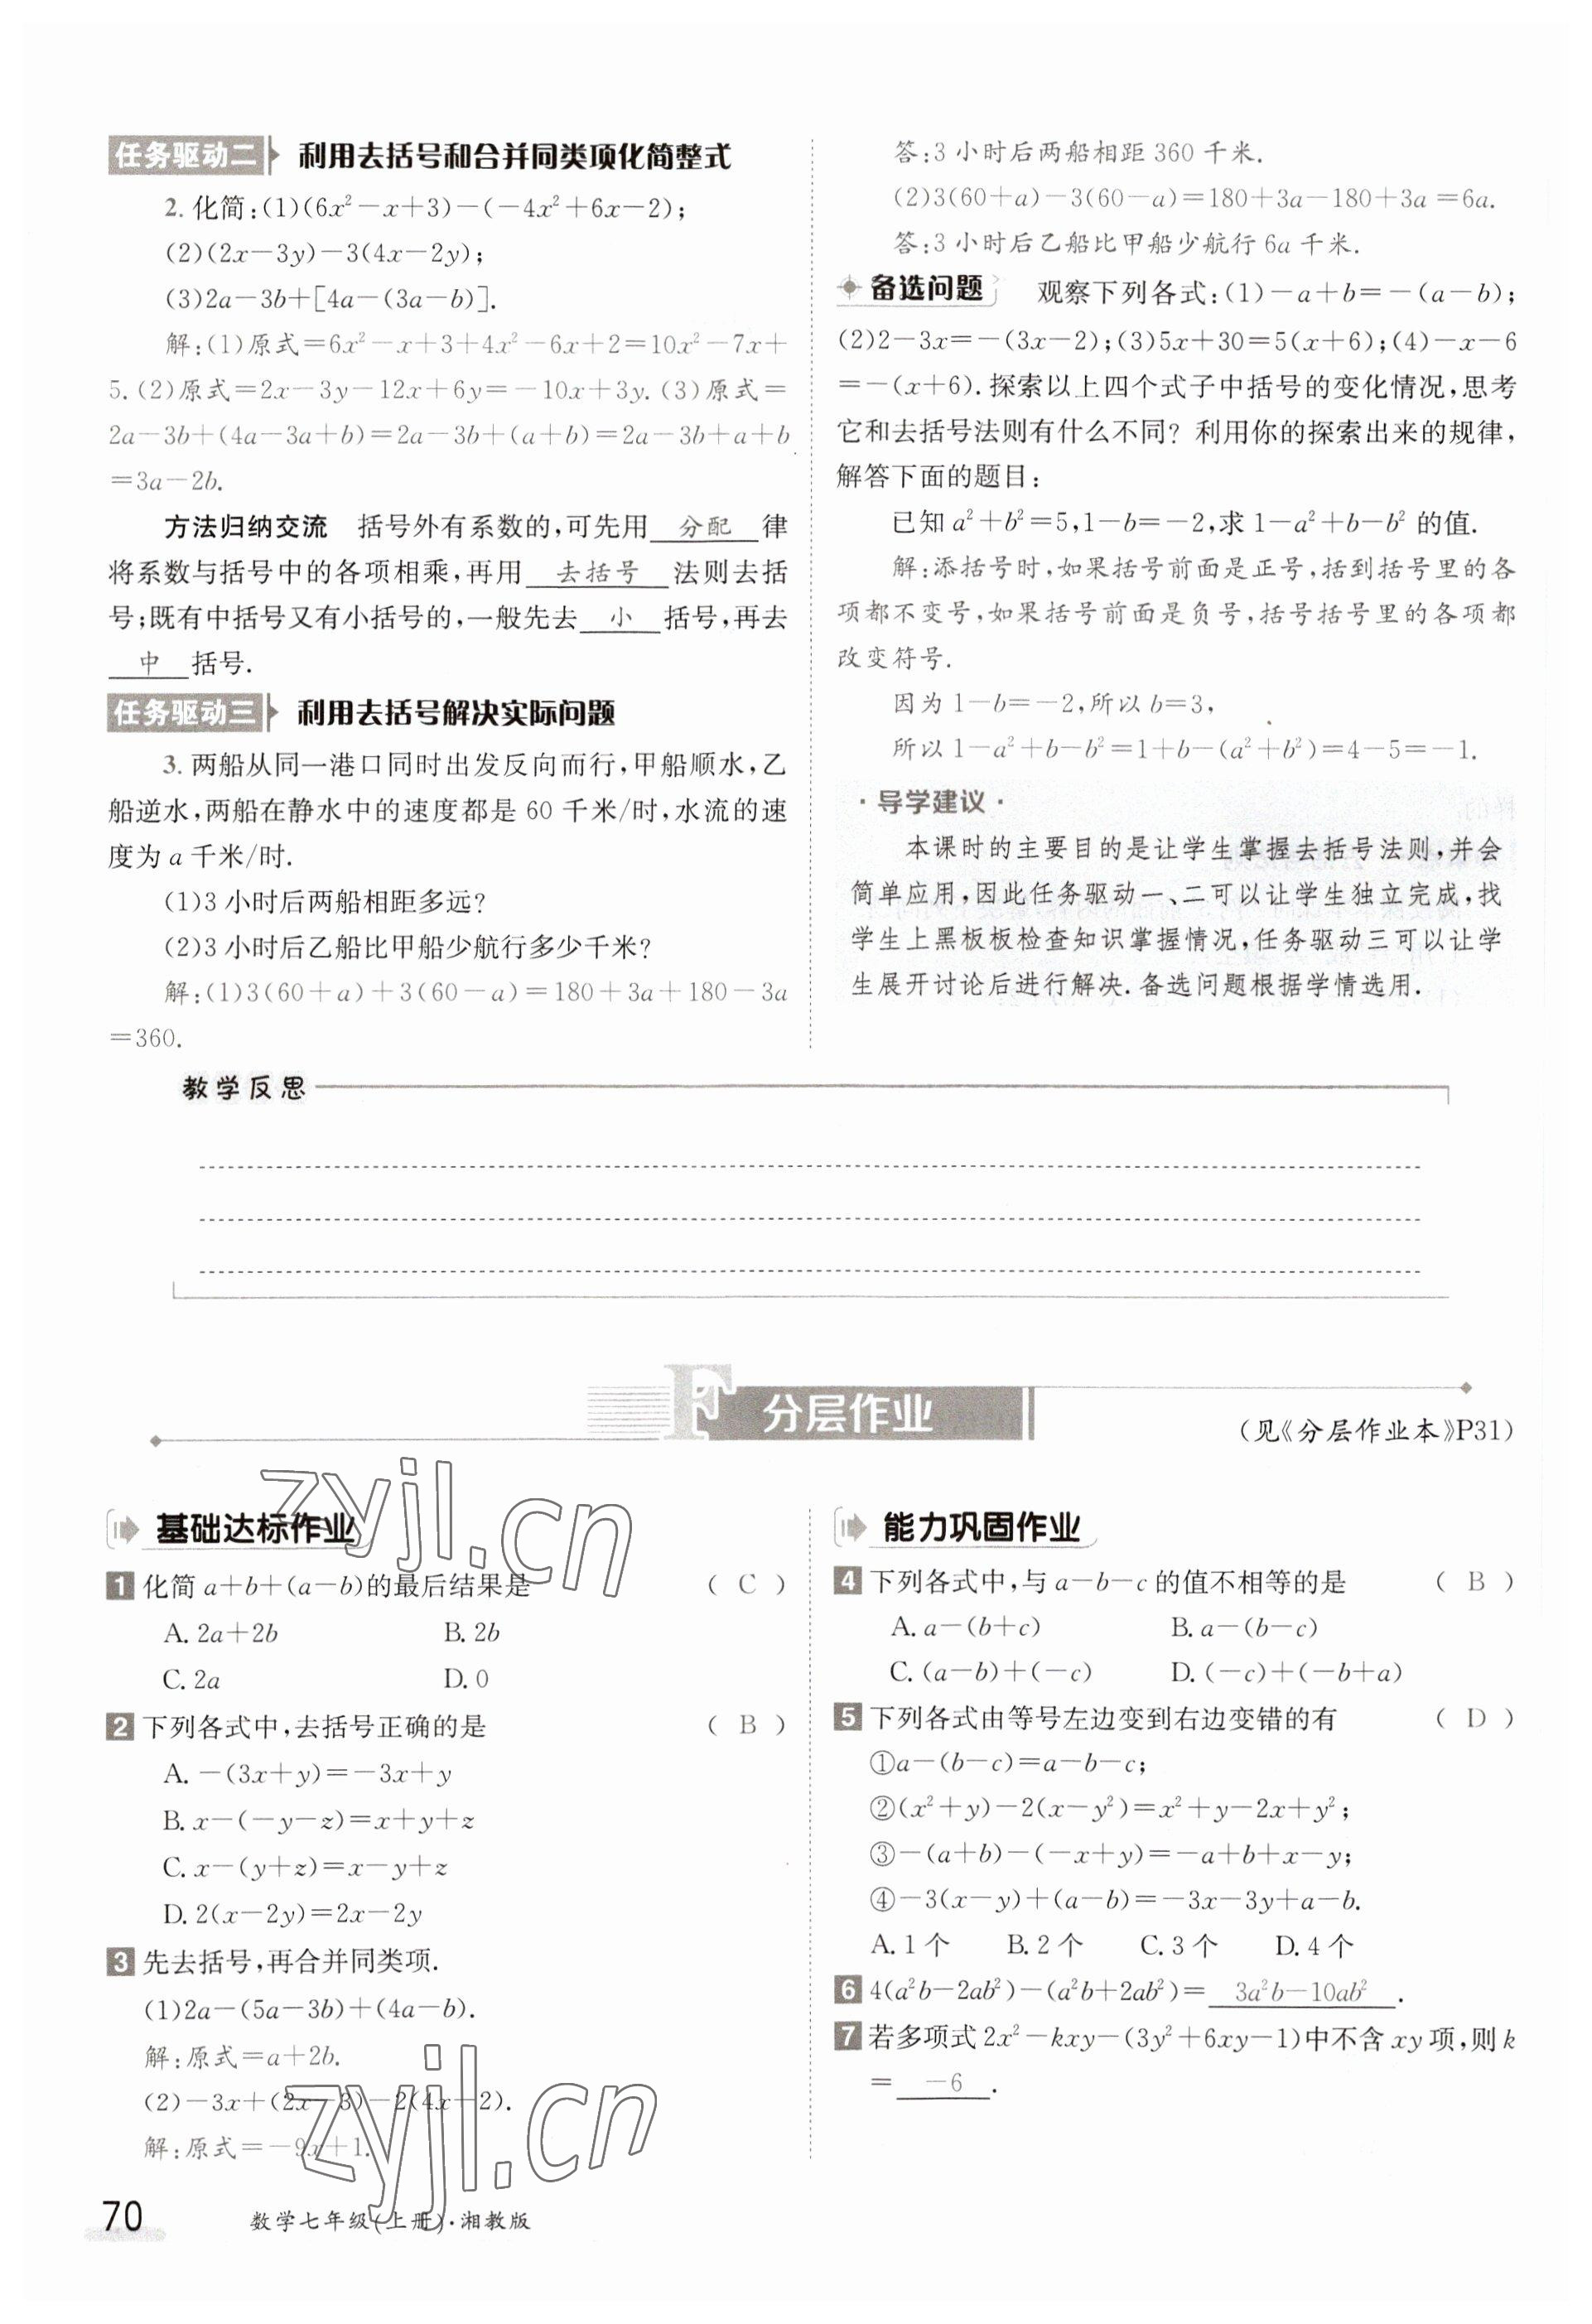 任务驱动二 利用去括号和合并同类项化简整式
2. 化简:(1)(6x²-x+3)-(-4x²+6x-2);
(2)(2x-3y)-3(4x-2y);
(3)2a-3b+[4a-(3a-b)].
解:(1)原式=6x²-x+3+4x²-6x+2=10x²-7x+
5.(2)原式=2x-3y-12x+6y=-10x+3y.(3)原式=
2a-3b+(4a-3a+b)=2a-3b+(a+b)=2a-3b+a+b
=3a-2b.
方法归纳交流 括号外有系数的,可先用 分配 律
将系数与括号中的各项相乘,再用 去括号 法则去括
号;既有中括号又有小括号的,一般先去 小 括号,再去
中 括号.
任务驱动三 利用去括号解决实际问题
3. 两船从同一港口同时出发反向而行,甲船顺水,乙
船逆水,两船在静水中的速度都是 60 千米/时,水流的速
度为 a 千米/时.
(1)3 小时后两船相距多远?
(2)3 小时后乙船比甲船少航行多少千米?
解:(1)3(60+a)+3(60-a)=180+3a+180-3a
=360.
答:3 小时后两船相距 360 千米.
(2)3(60+a)-3(60-a)=180+3a-180+3a=6a.
答:3 小时后乙船比甲船少航行 6a 千米.
备选问题 观察下列各式:(1)-a+b=-(a-b);
(2)2-3x=-(3x-2);(3)5x+30=5(x+6);(4)-x-6
=-(x+6).探索以上四个式子中括号的变化情况,思考
它和去括号法则有什么不同?利用你的探索出来的规律,
解答下面的题目:
已知 a²+b²=5,1-b=-2,求 1-a²+b-b² 的值.
解:添括号时,如果括号前面是正号,括到括号里的各
项都不变号,如果括号前面是负号,括号括号里的各项都
改变符号.
因为 1-b=-2,所以 b=3,
所以 1-a²+b-b²=1+b-(a²+b²)=4-5=-1.
·导学建议·
本课时的主要目的是让学生掌握去括号法则,并会
简单应用,因此任务驱动一、二可以让学生独立完成,找
学生上黑板板检查知识掌握情况,任务驱动三可以让学
生展开讨论后进行解决.备选问题根据学情选用.
教学反思
F 分层作业
(见《分层作业本》P31)
基础达标作业
1 化简 a+b+(a-b)的最后结果是 ( C )
A. 2a+2b B. 2b
C. 2a D. 0
2 下列各式中,去括号正确的是 ( B )
A. -(3x+y)=-3x+y
B. x-(-y-z)=x+y+z
C. x-(y+z)=x-y+z
D. 2(x-2y)=2x-2y
3 先去括号,再合并同类项.
(1)2a-(5a-3b)+(4a-b).
解:原式=a+2b.
(2)-3x+(2x-3)-2(4x-2).
解:原式=-9x+1.
能力巩固作业
4 下列各式中,与 a-b-c 的值不相等的是 ( B )
A. a-(b+c) B. a-(b-c)
C. (a-b)+(-c) D. (-c)+(-b+a)
5 下列各式由等号左边变到右边变错的有 ( D )
①a-(b-c)=a-b-c;
②(x²+y)-2(x-y²)=x²+y-2x+y²;
③-(a+b)-(-x+y)=-a+b+x-y;
④-3(x-y)+(a-b)=-3x-3y+a-b.
A. 1 个 B. 2 个 C. 3 个 D. 4 个
6 4(a²b-2ab²)-(a²b+2ab²)= 3a²b-10ab² .
7 若多项式 2x²-kxy-(3y²+6xy-1)中不含 xy 项,则 k
= -6 .
zyjl.cn
zyjl.cn
70 数学七年级(上册)·湘教版